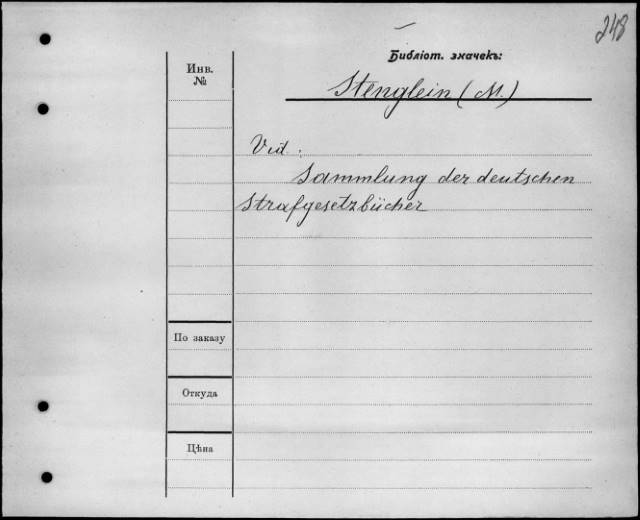 248
Библіот. значекъ:
Инв.
№
Stenglein (M.)
Vid.:
Sammlung der deutschen
Strafgesetzbücher
По заказу
Откуда
Цѣна